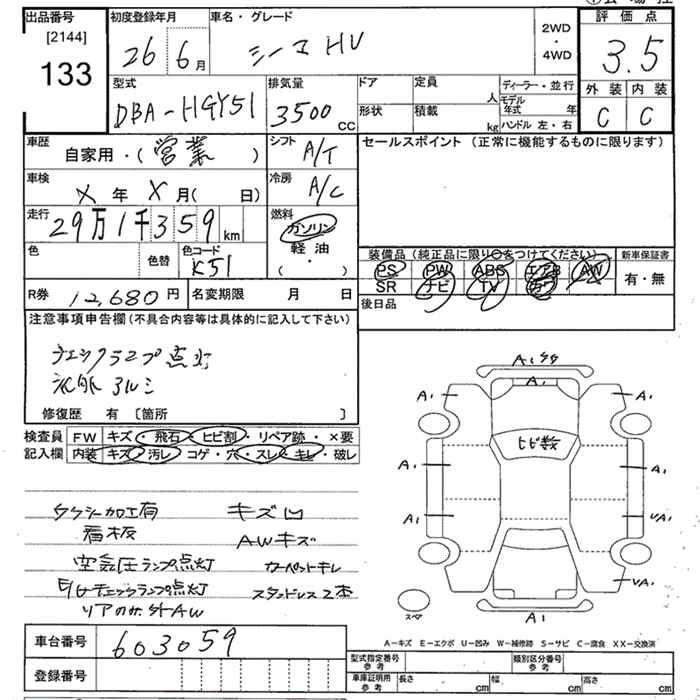 出品番号 [2144] 133
初度登録年月 26 6月
車名・グレード シーマ HV
2WD・4WD
評価点 3.5
外装 C 内装 C
型式 DBA-HGY51
排気量 3500 CC
ドア 定員 人 ディーラー・並行
形状 積載 kg モデル年式 年
ハンドル 左・右
車歴 自家用・(営業)
シフト A/T
セールスポイント(正常に機能するものに限ります)
車検 X年X月( 日)
冷房 A/C
走行 29万1千359km
燃料 ガソリン 軽油 (・)
色 色替 色コード K51
装備品(純正品に限り○をつけてください) 新車保証書
PS PW ABS エアB AW 有・無
SR ナビ TV カワ
R券 12,680円 名変期限 月 日
後日品
注意事項申告欄(不具合内容等は具体的に記入して下さい)
チェックランプ点灯
修復歴 有 〔箇所 〕
検査員 FW キズ・飛石・ヒビ割・リペア跡・×要
記入欄 内装 キズ・汚レ・コゲ・穴・スレ・キレ・破レ
タクシー加工有 キズ凹
看板 AWキズ
空気圧ランプ点灯 カーペットキレ
E/Gチェックランプ点灯 スタッドレス2本
リアのみ外AW
A1
A1
A1 A1
ヒビ数
A1 A1
A1 UA1
UA1
スペア
A1
A-キズ E-エクボ U-凹み W-補修跡 S-サビ C-腐食 XX-交換済
車台番号 603059
登録番号
型式指定番号 参考 類別区分番号 参考
車庫証明用 参考 長さ cm 幅 cm 高さ cm